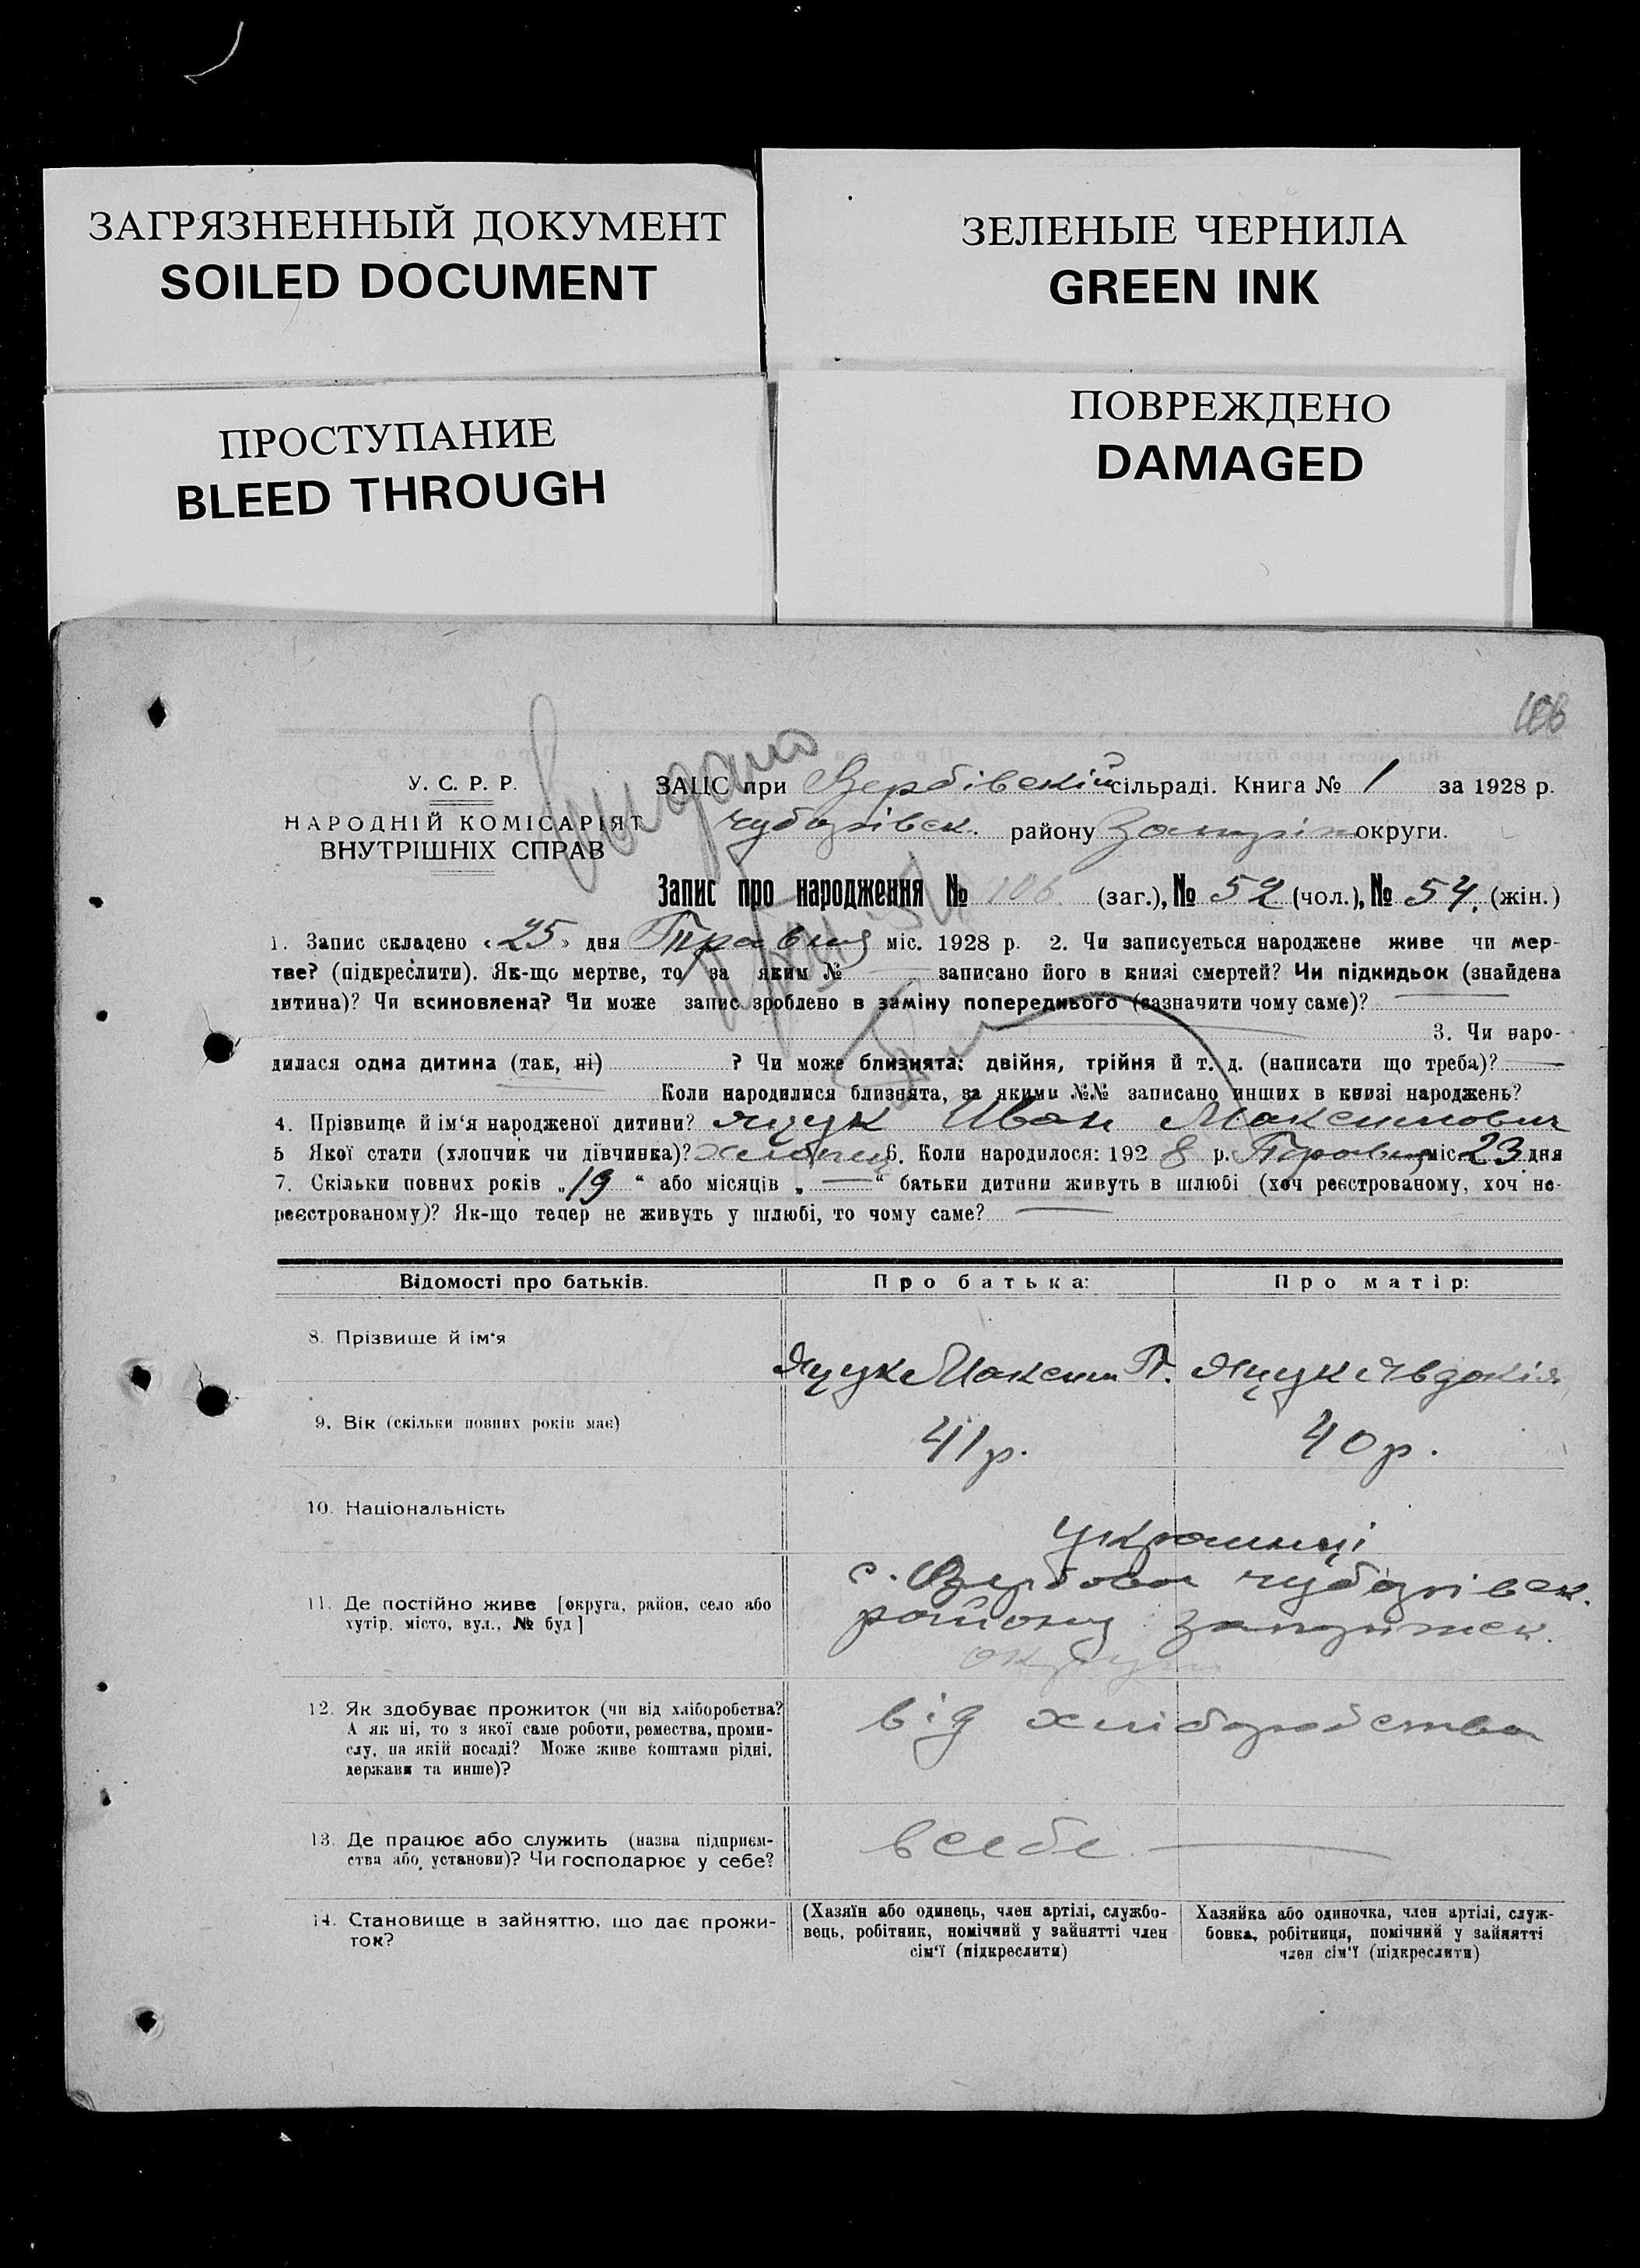 ЗАГРЯЗНЕННЫЙ ДОКУМЕНТ
SOILED DOCUMENT
ЗЕЛЕНЫЕ ЧЕРНИЛА
GREEN INK
ПРОСТУПАНИЕ
BLEED THROUGH
ПОВРЕЖДЕНО
DAMAGED
106
Видано
У. С. Р. Р.
НАРОДНІЙ КОМІСАРІЯТ
ВНУТРІШНІХ СПРАВ
ЗАЦС при Вербівській сільраді. Книга № 1 за 1928 р.
Чубарівськ. району Запоріж округи.
Запис про народження № 106 (заг.), № 52 (чол.), № 54. (жін.)
1. Запис складено «25» дня Травня міс. 1928 р. 2. Чи записуеться народжене живе чи мер-
тве? (підкреслити). Як-що мертве, то за яким № — записано його в книзі смертей? Чи підкидьок (знайдена
дитина)? Чи всиновлена? Чи може запис зроблено в заміну попереднього (зазначити чому саме)? —
3. Чи наро-
дилася одна дитина (так, ні) ? Чи може близнята: двійня, трійня й т. д. (написати що треба)? —
Коли народилися близнята, за якими №№ записано инших в книзі народжень?
4. Прізвище й ім'я народженої дитини? Яцук Иван Максимович
5 Якої стати (хлопчик чи дівчинка)? Хлопець 6. Коли народилося: 1928 р. Травня міс. 23 дня
7. Скільки повних років „19“ або місяців „—“ батьки дитини живуть в шлюбі (хоч реєстрованому, хоч не-
реєстрованому)? Як-що тепер не живуть у шлюбі, то чому саме? —
Відомості про батьків. Про батька: Про матір:
8. Прізвище й ім'я Яцук Максим П. Яцук Явдокія
9. Вік (скільки повних років має) 41 р. 40 р.
10. Національність українці
11. Де постійно живе [округа, район, село або
хутір, місто, вул., № буд]
с. Вербова Чубарівськ.
району Запоріжськ.
округи
12. Як здобуває прожиток (чи від хліборобства?
А як ні, то з якої саме роботи, ремества, проми-
слу, на якій посаді? Може живе коштами рідні,
держави та инше)?
від хліборобства
13. Де працює або служить (назва підприєм-
ства або установи)? Чи господарює у себе?
в себе —
14. Становище в зайняттю, що дає прожи-
ток?
(Хазяїн або одинець, член артілі, службо-
вець, робітник, помічний у зайнятті член
сім'ї (підкреслити)
Хазяйка або одиночка, член артілі, служ-
бовка, робітниця, помічний у зайнятті
член сім'ї (підкреслити)